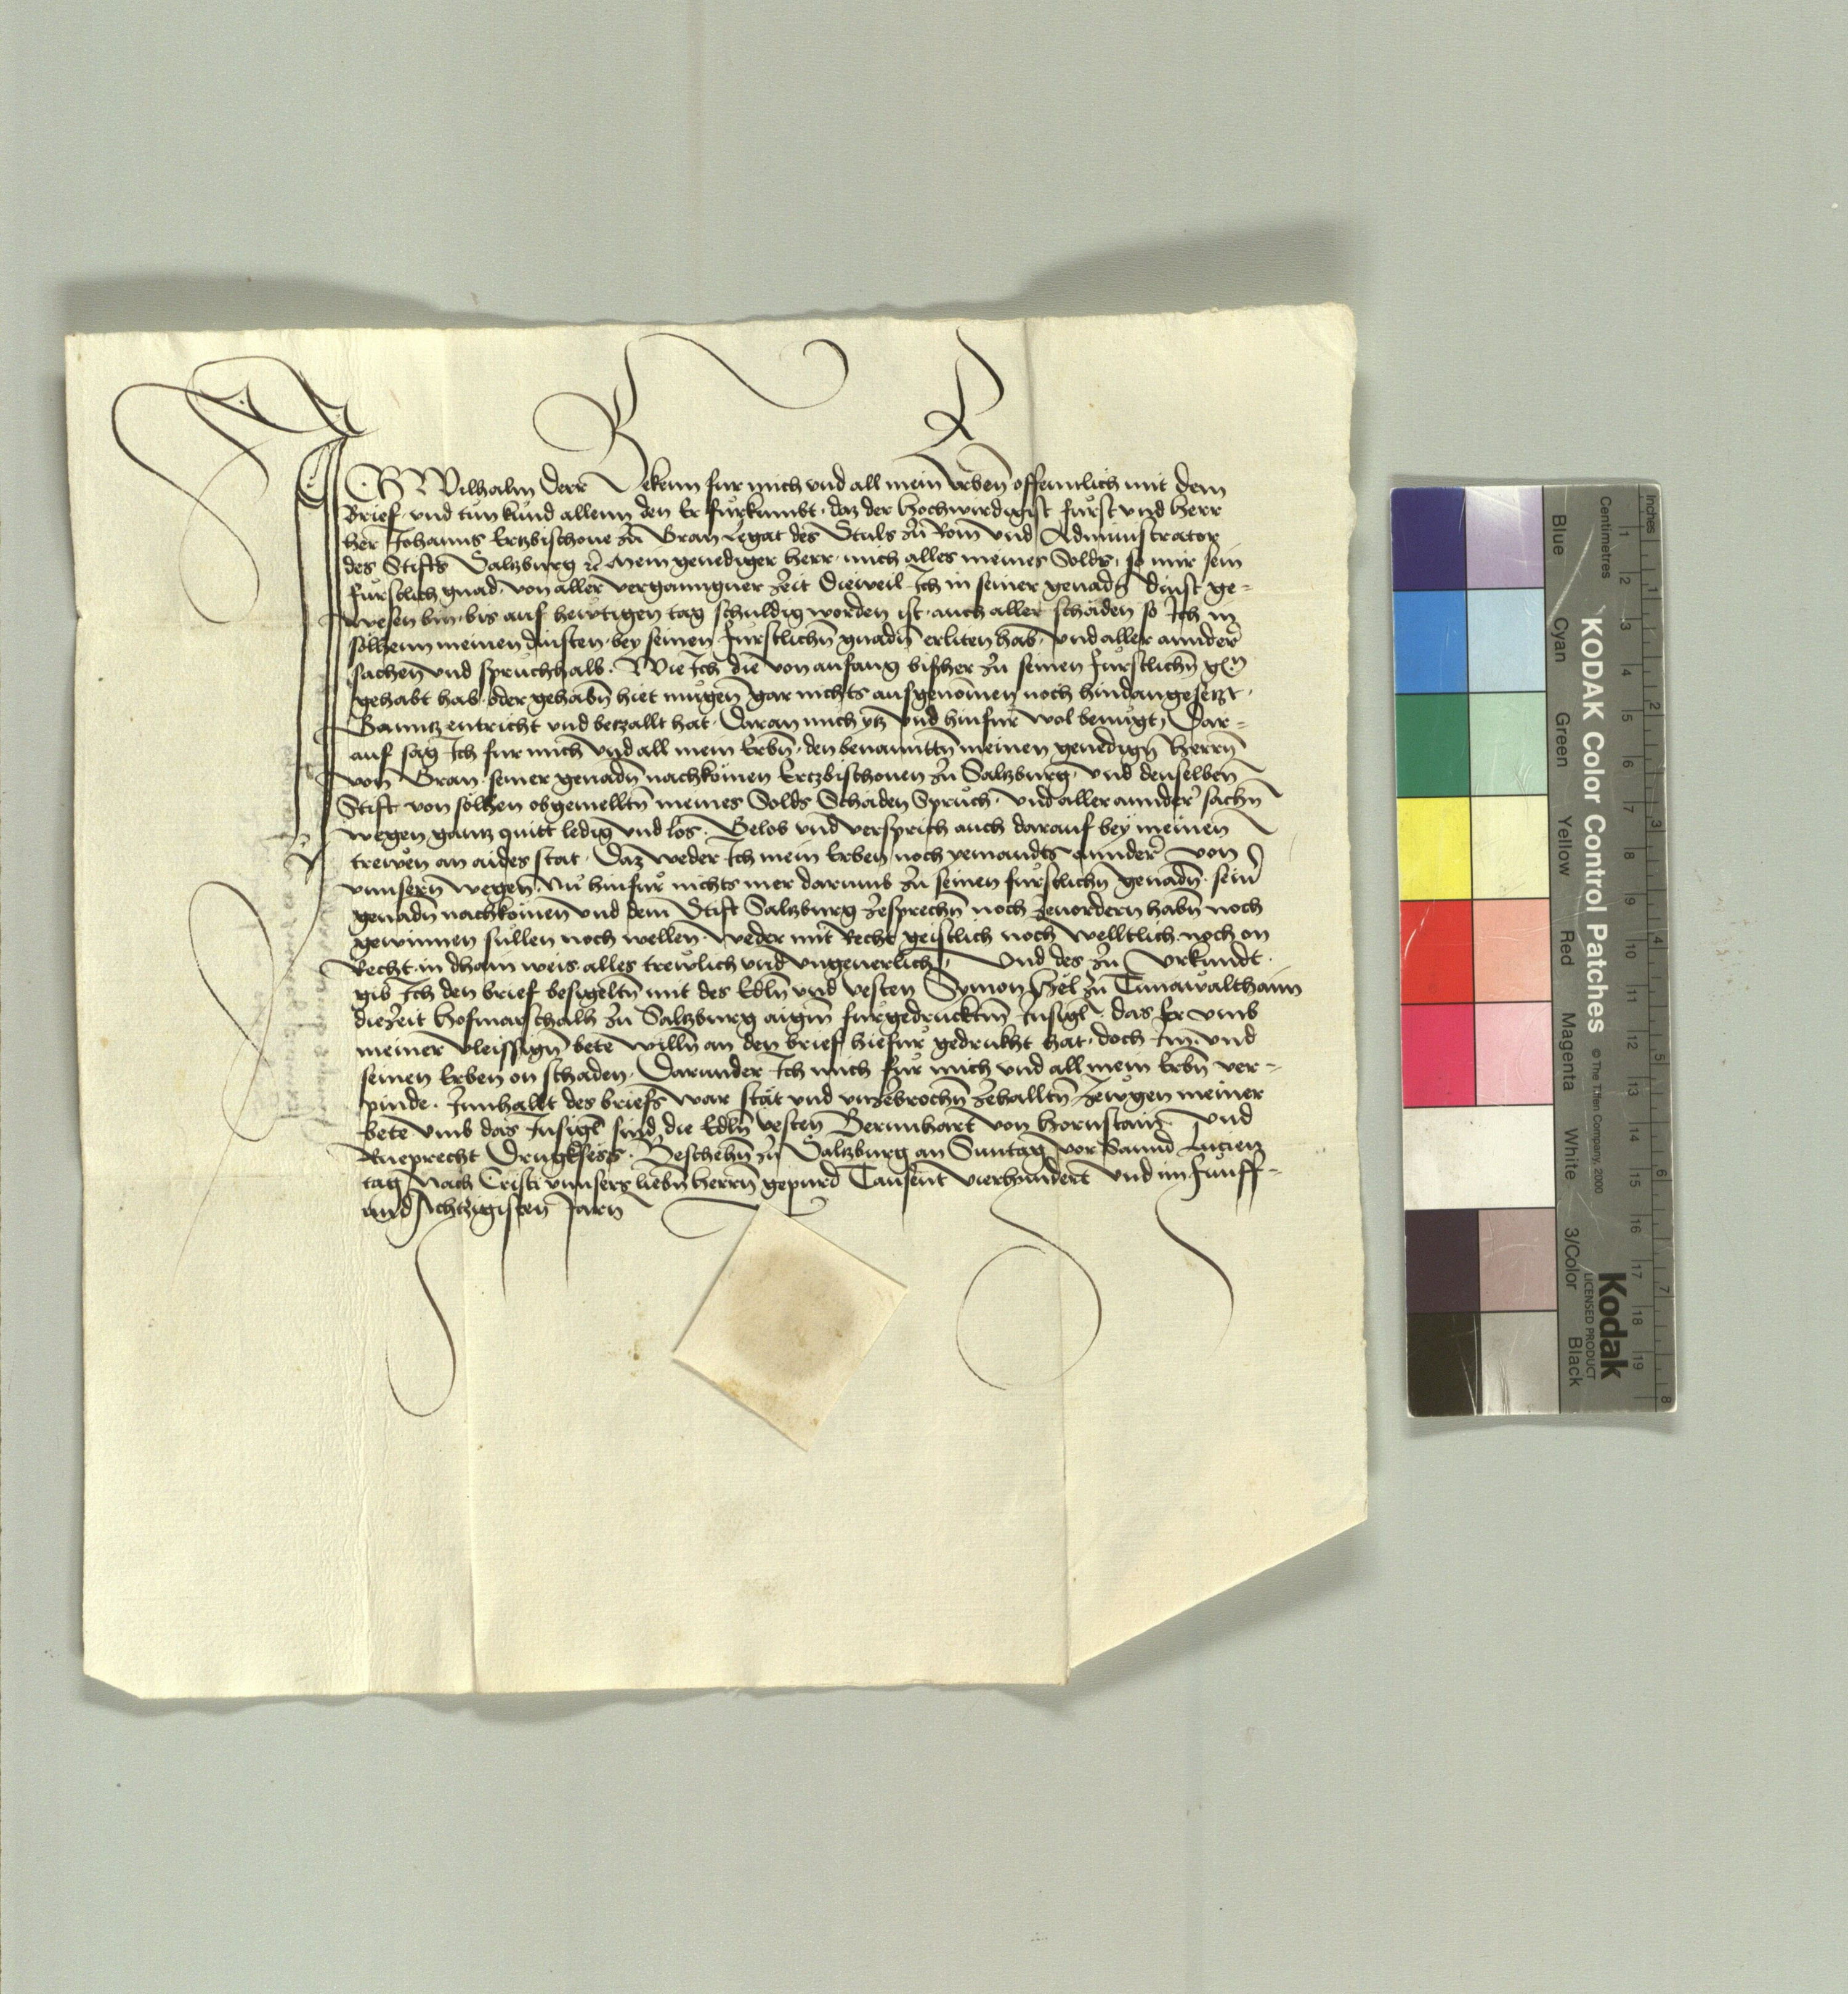 Ich Wilhalm Derr Bekenn fur mich und all mein Erben offennlich mit dem
Brief, und tun kund allenn den Er fůrkumbt, daz der hochwirdigist fůrst und herr
her Johanns Ertzbischoue zů Gran Legat des Stuls zů Rom und Administrator
des Stifts Saltzburg ꝛc Mein genediger herr, mich alles meines Solds, so mir sein
fůrstlich gnad, von aller verganngner zeit dieweil Ich in seiner genadn̄ dinst ge-
wesen bin, bis auf hewtigen tag schuldig worden ist, auch aller schäden so Ich in
sölhenn meinen dinsten bey seinen fůrstlichn̄ gnadn̄ erliten hab, und aller annder
sachen̄ und sprůchhalb. Wie Ich die von anfang bisher zů seinen fůrstlichn̄ gn̄
gehabt hab, oder gehabn̄ hiet můgen̄ gar nichts ausgenomen noch hindangesetzt,
Ganntz entricht und betzallt hat. Daran mich ytz und hinfůr wol benůgt, Dar-
auf sag Ich fur mich und all mein Erbn̄, den benanntn̄ meinen genedign̄ Herrn̄
von Gran, seiner genadn̄ nachkomen Ertzbischouen zů Saltzburg, und denselben̄
Stift von sölhen obgemelltn̄ meines Solds Schäden Sprůch, und aller annder sachn̄
wegen gantz quitt ledig und los. Gelob und versprich auch darauf bey meinen
trewen an aides stat, Daz weder Ich mein Erben noch yemandts annder von
unnsern̄ wegen, Nu hinfůr nichts mer darumb zů seinen fůrstlichn̄ genadn̄, sein̄
genadn̄ nachkomen̄ und dem Stift Saltzburg zesprechn̄ noch zeuordern habn̄ noch
gewinnen süllen noch wellen, weder mit Recht geistlich noch welltlich, noch on
Recht, in dhain weis, alles trewlich und ungeuerlich, Und des zů Urkundt,
gib Ich den brief besigeltn̄ mit des Edln̄ und vesten Symon Hël zů Tunawalthaim
diezeit hofmarschalh zů Saltzburg aigm̄ fůrgedrucktm̄ Insigl, das Er umb
meiner vleissign̄ bete willn̄ an den brief hiefůr gedrukht hat, doch Im und
seinen Erben on schaden, Darunder Ich mich fůr mich und all mein Erbn̄ ver-
pinde. Innhallt des briefs war stät und unzebrochn̄ zehalltn̄, Zewgen meiner
bete umb das Insigl sind die Edln̄ vesten Bernnhart von Hornstain und
Rueprecht Drugksess. Geschehn̄ zů Saltzburg an Suntag vor Sannd Lucien
tag Nach Cristi unnsers liebn̄ herrn̄ gepurd Tausent vierhundert und im Fünff-
und Achtzigisten Jarn
KODAK Color Control Patches
© The Tiffen Company, 2000
Kodak
LICENSED PRODUCT
Inches
Centimetres
Blue
Cyan
Green
Yellow
Red
Magenta
White
3/Color
Black
1 2 3 4 5 6 7 8 9 10 11 12 13 14 15 16 17 18 19
1 2 3 4 5 6 7 8